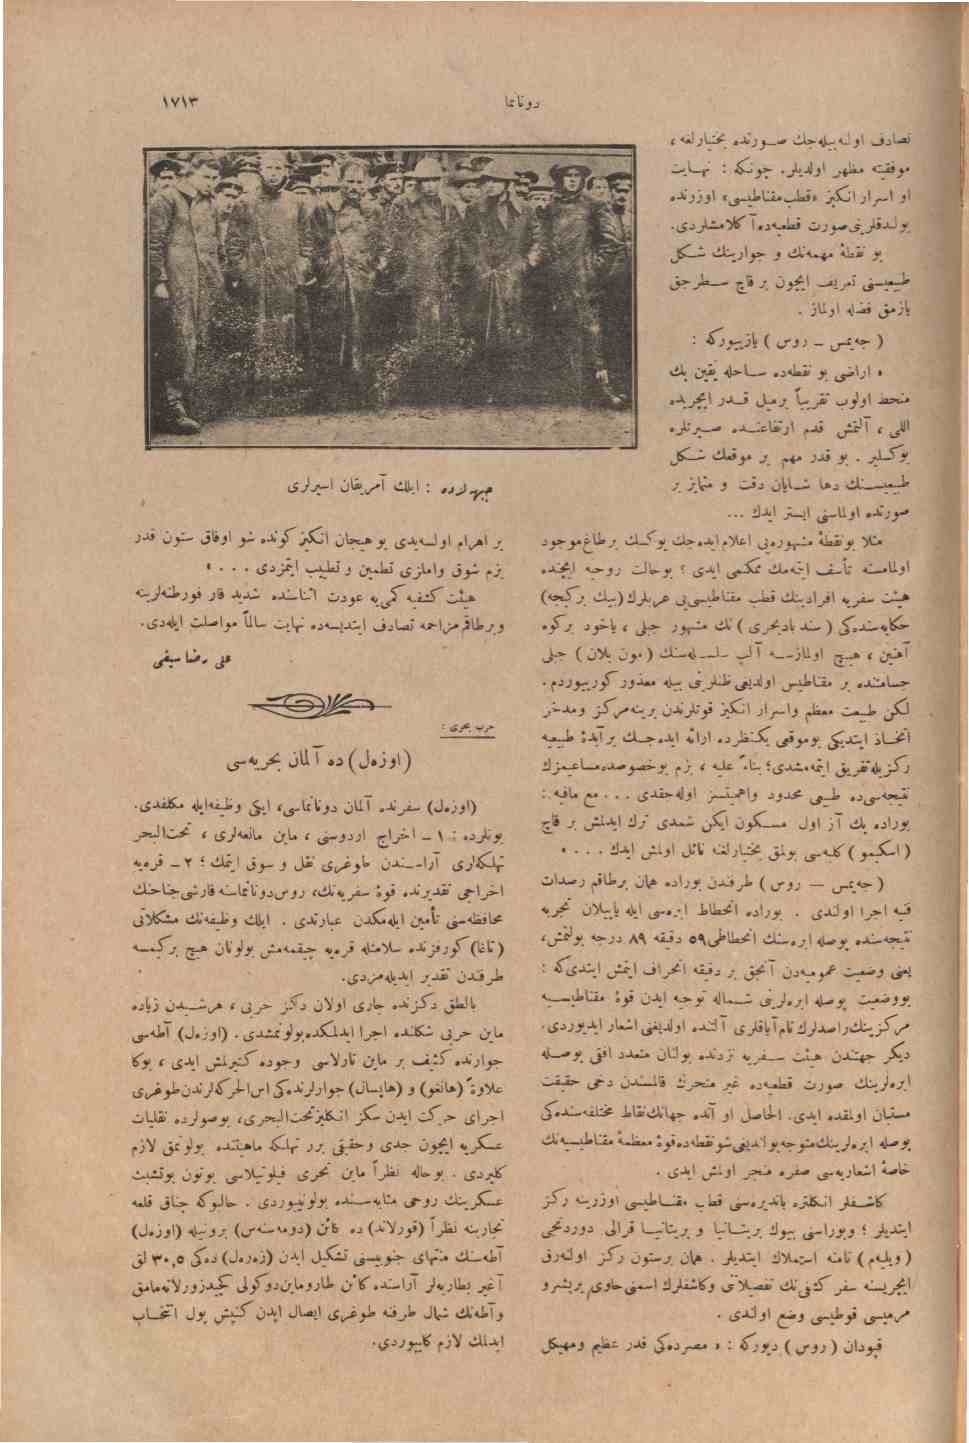 دونانما
١٧١٣
تصادف اولنه‌بیله‌جك صـورتده بختیارلغه ،
موفقیته مظهر اولدیلر. چونكه : نهـایت
او اسرار انكیز «قطب مقناطیسی» اوزرنده
بولدقلرینی صورت قطعیه‌ده آ كلامشلردی.
بو نقطۀ مهمه‌نك و جوارینك شـكل
طبیعیسنی تعریف ایچون بر قاچ سـطر جق
یازمق فضله اولماز .
( جه‌یمس ـ روس ) یازییوركه :
« اراضی بو نقطه‌ده سـاحله یقین پك
منحط اولوب تقریباً برمیل قـدر ایچریده
اللی ، آلتمش قدم ارتفاعنـده صـیرتلره
یوكسلیر . بو قدر مهم بر موقعك شـكل
طبیعیسـنك دها شـایان دقت و متمایز بر
صورتده اولماسنی ایستر ایدك ...
مثلا بونقطۀ مشهوره‌یی اعلام ایده‌جك یوكسك برطاغ موجود
اولمامسنه تأسف ایتمه‌مك ممكنمی ایدی ؟ بوحالت روحیه ایچنده
هیئت سفریه افرادینك قطب مقناطیسی‌یی عربلرك (بیك بركیجه)
حكایه‌سنده‌كی ( سندبادبحری ) نك مشهور جبلی ، یاخود بركوه
آهنین ، هیچ اولمازسـه آلپ سلسله‌سنك (مون بلان) جبلی
جسامتنده بر مقناطیس اولدیغی ظنلرینی بیله معذور كورییوردم.
لكن طبیعت معظم واسرار انكیز قوتلرندن برینه مركز ومدخر
اتخـاذ ایتدیكی بوموقعی بكنظرده ارائه ایده‌جـك برآبدۀ طبیعیه
ركزیله تفریق ایتمه‌مشدی؛ بناءً علیه ، بزم بوخصوصده مساعیمزك
نتیجه‌سی‌ده طبیعی محدود واهمیتسز اوله‌جقدی . . . مع مافیه :
بوراده پك آز اول مسكون ایكن شمدی ترك ایدلمش بر قاچ
( اسكیمو ) كلبه‌سی بولمق بختیارلغنه نائل اولمش ایدك . . . »
( جه‌یمس — روس ) طرفندن بوراده همان برطاقم رصدات
فنیه اجرا اولندی . بوراده انحطاط ابره‌سی ایله یاپیلان تجربه
نتیجه‌سنده پوصله ابره‌سنك انحطاطی ٥٩ دقیقه ٨٩ درجه بولنمش،
یعنی وضعیت عمومیه‌دن آنجق بر دقیقه انحراف ایتمش ایتدی‌كه :
بووضعیت پوصله ابره‌لرینی شـماله توجیه ایدن قوۀ مقناطیسـیه
مركزینك راصدلرك تام آیاقلری آلتنده اولدیغنی اشعار ایدیوردی.
دیكر جهتدن هیئت سـفریه نزدنده بولنان متعدد افقی پوصـله
ابره‌لرینك صورت قطعیه‌ده غیر متحرك قالمسندن دخی حقیقت
مستبان اولمقده ایدی. الحاصل او آنده جهانك نقاط مختلفه‌سنده‌كی
پوصله ابره‌لرینك متوجه بولندیغی شو نقطه‌ده قوۀ معظمۀ مقناطیسیه‌نك
خاصۀ اشعاریه‌سی صفره منجر اولمش ایدی .
كاشـفلر انكلتره باندیره‌سنی قطب مقنـاطیسی اوزرینه ركز
ایتدیلر ؛ وبوراسنی بیوك بریتـانیا و بریتانیـا قرالی دوردنجی
( ویلیام ) نامنه استملاك ایتدیلر . همان برستون ركز اولنه‌رق
ایچریسنه سفر كشفی نك تفصیلاتی وكاشفلرك اسمنی حاوی بریشرو
مرمیسی قوطیسی وضع اولندی .
قپودان ( روس ) دیوركه : « مصرده‌كی قدر عظیم ومهیكل
جبهه‌لرده : ایلك آمریقان اسیرلری
بر اهرام اولسه‌یدی بو هیجان انكیز كونده شو اوفاق ستون قدر
بزم شوق واملزی تطمین و تطییب ایتمزدی . . . »
هیئت كشفیه كمی‌یه عودت اثناسنده شدید قار فورطنه‌لرینه
وبرطاقم مزاحمه تصادف ایتدیسه‌ده نهایت سالماً مواصلت ایله‌دی.
علی رضا سیفی
حرب بحری :
(اوزه‌ل) ده آلمان بحریه‌سی
(اوزه‌ل) سفرنده آلمان دونانماسی، ایكی وظیفه‌ایله مكلفدی.
بونلرده : ١ ـ اخراج اردوسنی ، ماین مانعه‌لری ، تحت‌البحر
تهلكه‌لری آراسـندن طوغری نقل و سوق ایتمك ؛ ٢ ـ قره‌یه
اخراجی تقدیرنده قوۀ سفریه‌نك، روس دونانماسنه قارشی جناحنك
محافظه‌سنی تأمین ایله‌مكدن عبارتدی . ایلك وظیفه‌نك مشكلاتی
(تاغا) كورفزنده سلامتله قره‌یه چیقمه‌مش بولونان هیچ بركیمسه
طرفندن تقدیر ایدیله‌مزدی.
بالطق دكزنده جاری اولان دكز حربی ، هرشـیدن زیاده
ماین حربی شكلنده اجرا ایدلمكده بولونمشدی . (اوزه‌ل) آطه‌سی
جوارنده كثیف بر ماین تارلاسی وجوده كتیرلمش ایدی ، بوكا
علاوةً (هانغو) و (هاپسال) جوارلرنده‌كی اس‌الحركه‌لرندن طوغری
اجرای حركت ایدن سكز انكلیز تحت‌البحری، بوصولرده نقلیات
عسكریه ایچون جدی وحقیقی برر تهلكه ماهیتنده بولونمق لازم
كلیردی . بوحاله نظراً ماین تحری فیلوتیلاسی بوتون بوتشبث
عسكرینك روحی مثابه‌سـنده بولونیوردی . حالبوكه چناق قلعه
تجاربنه نظراً (قورلاند) ده كائن (دومه‌سنه‌س) برونیله (اوزه‌ل)
آطه‌سنك منتهای جنوبیسنی تشكیل ایدن (زه‌ره‌ل) ده‌كی ٣٠,٥ لق
آغیر بطاریه‌لر آراسنده كائن طار وماین‌دوكولی كچیدزورلانه‌مامق
وآطه‌نك شمال طرفنه طوغری ایصال ایدن كنیش یول انتخـاب
ایدلمك لازم كلییوردی.